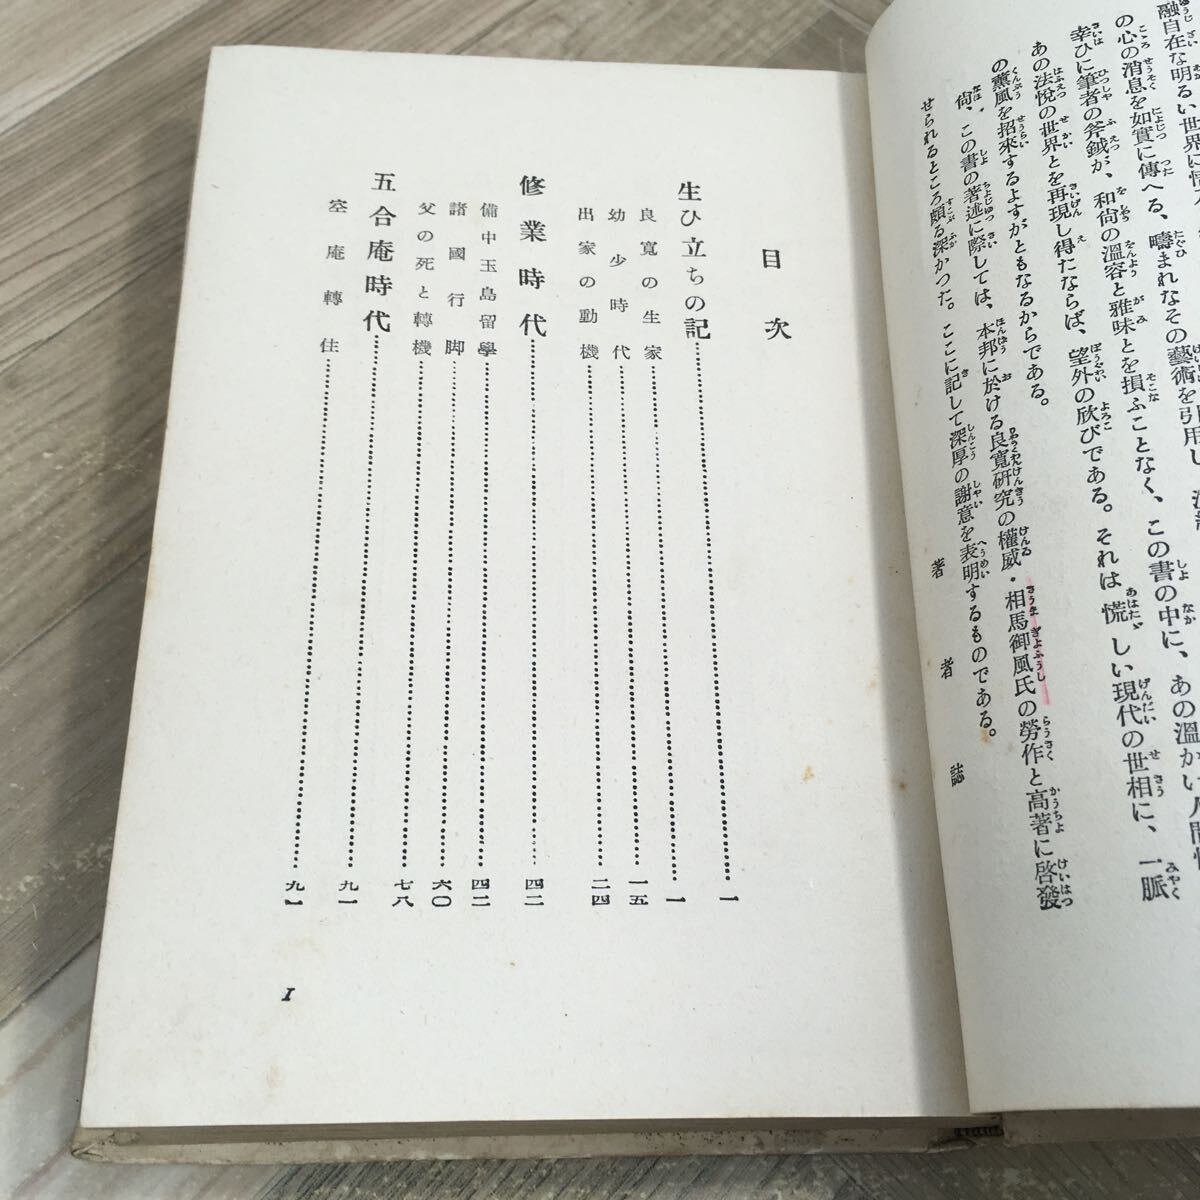 融自在な明るい世界に
の心の消息を如實に傳へる、疇まれなその藝術を引用し
幸ひに筆者の斧鉞が、和尙の溫容と雅味とを損ふことなく、この書の中に、あの溫かい人間
あの法悅の世界とを再現し得たならば、望外の欣びである。それは慌しい現代の世相に、一脈
の薰風を招來するよすがともなるからである。
尙、この書の著述に際しては、本邦に於ける良寬硏究の權威・相馬御風氏の勞作と高著に啓發
せられるところ頗る深かつた。ここに記して深厚の謝意を表明するものである。
著者誌
目次
生ひ立ちの記…………一
良寬の生家…………一
幼少時代…………一五
出家の動機…………二四
修業時代…………四二
備中玉島留學…………四二
諸國行脚…………六〇
父の死と轉機…………七八
五合庵時代…………九一
空庵轉住…………九一
I